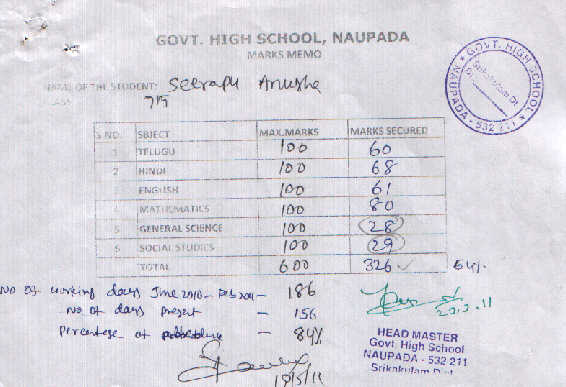 GOVT. HIGH SCHOOL, NAUPADA
MARKS MEMO
NAME OF THE STUDENT: Seerapu Anusha
CLASS 7th
GOVT. HIGH SCHOOL
Srikakulam Dt
NAUPADA - 532 211
S NO. SBJECT MAX.MARKS MARKS SECURED
1 TELUGU 100 60
2 HINDI 100 68
ENGLISH 100 61
4 MATHEMATICS 100 80
5 GENERAL SCIENCE 100 28
6 SOCIAL STUDIES 100 29
TOTAL 600 326 54%
No of working days June 2010 - Feb 2011 - 186
No of days present - 156
Percentage of - 84%
HEAD MASTER
Govt. High School
NAUPADA - 532 211
Srikakulam Dist
18/5/11